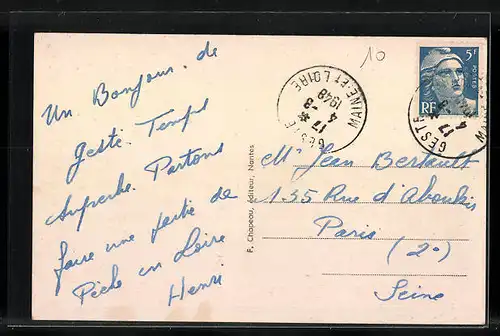 Un Bonjour de
Gesté. Temps
Superbe. Partons
faire une partie de
Pêche en Loire
Henri
P. Chapeau, éditeur, Nantes
10
GESTÉ
17 H
4 -8
1948
MAINE-ET-LOIRE
5F
POSTES
RF
GESTÉ
17
4
MAINE
Mr Jean Bertault
135 Rue d'Aboukir
Paris (2e)
Seine